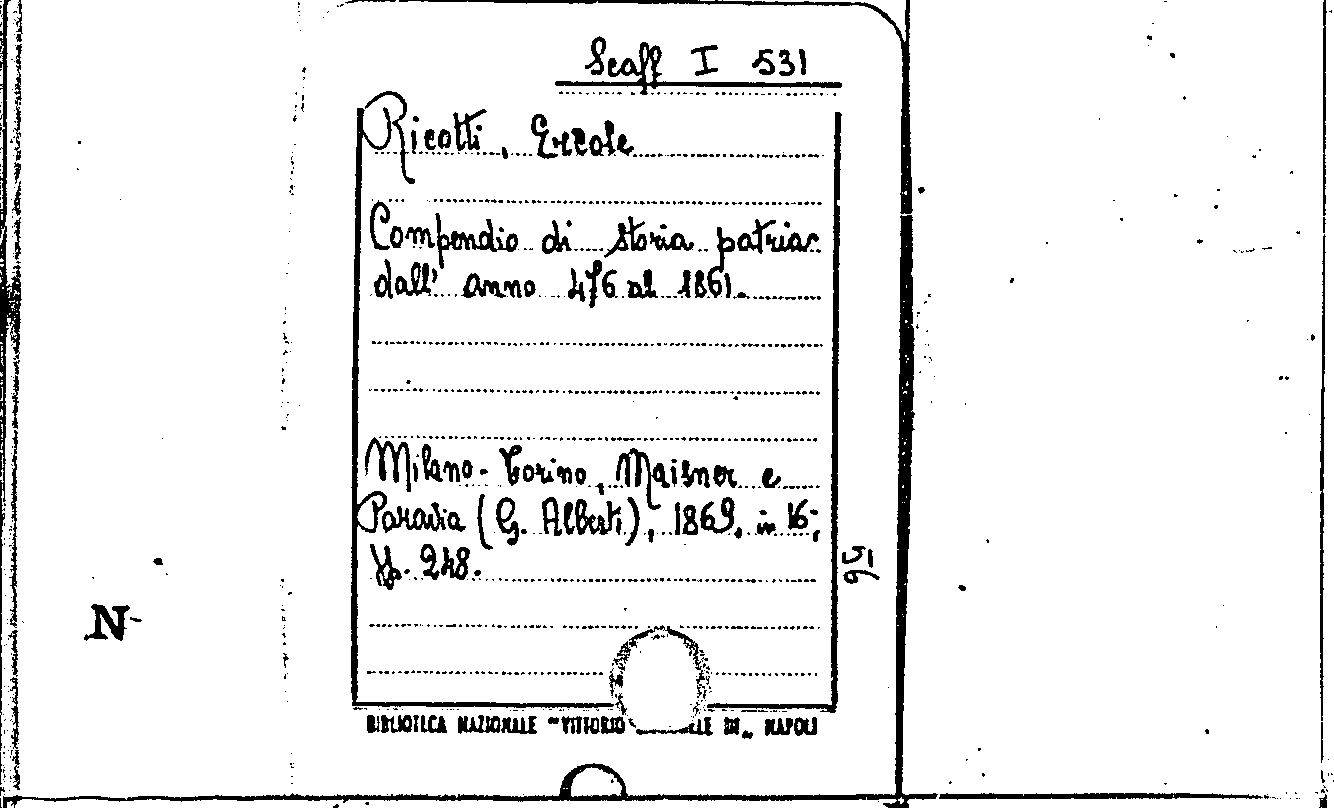 Scaff I 531
Ricotti, Ercole
Compendio di storia patria
dall' anno 476 al 1861.
Milano-Torino, Maisner e
Paravia (G. Alberti), 1869, in 16°,
pp. 248.
56
N
BIBLIOTECA NAZIONALE "VITTORIO ELE DI" NAPOLI